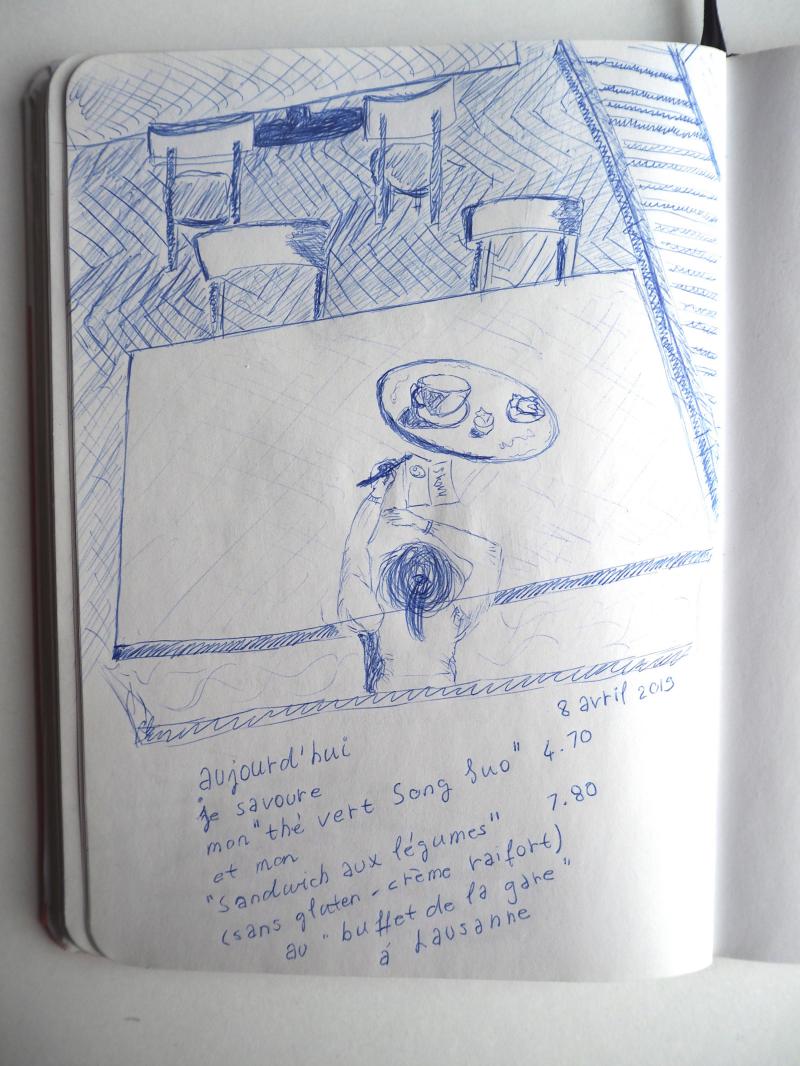 8 avril 2019
aujourd'hui
je savoure
mon "thé vert Song Luo" 4.70
et mon
"Sandwich aux légumes" 7.80
(sans gluten - crème raifort)
au "buffet de la gare"
à Lausanne